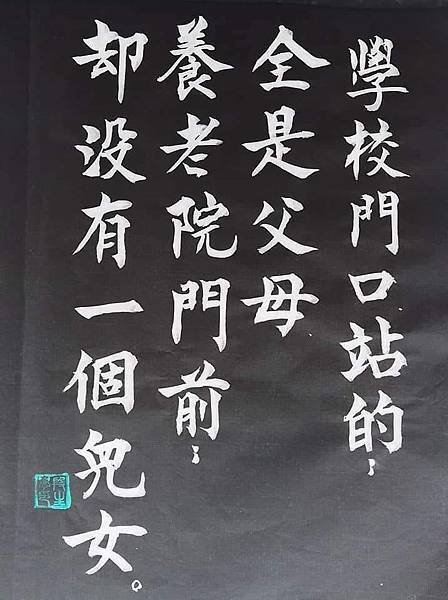 學校門口站的；
全是父母
養老院門前；
却没有一個兒女。